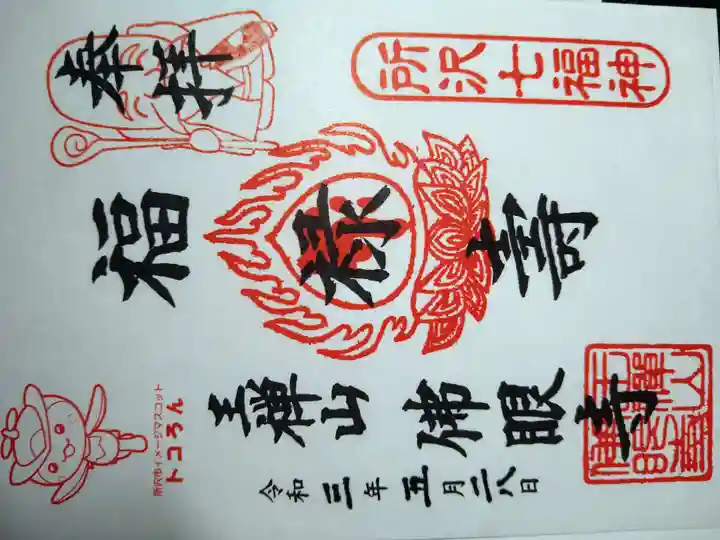 所沢七福神
奉拝
福禄寿
玉禅山 佛眼寺
令和三年五月二八日
所沢市イメージマスコット
トコろん